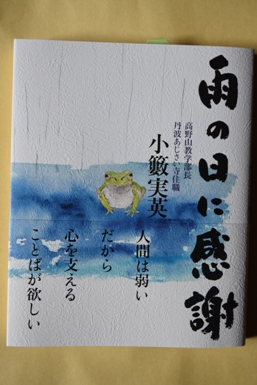 雨の日に感謝
高野山教学部長
丹波あじさい寺住職
小籔実英
人間は弱い
だから
心を支える
ことばが欲しい